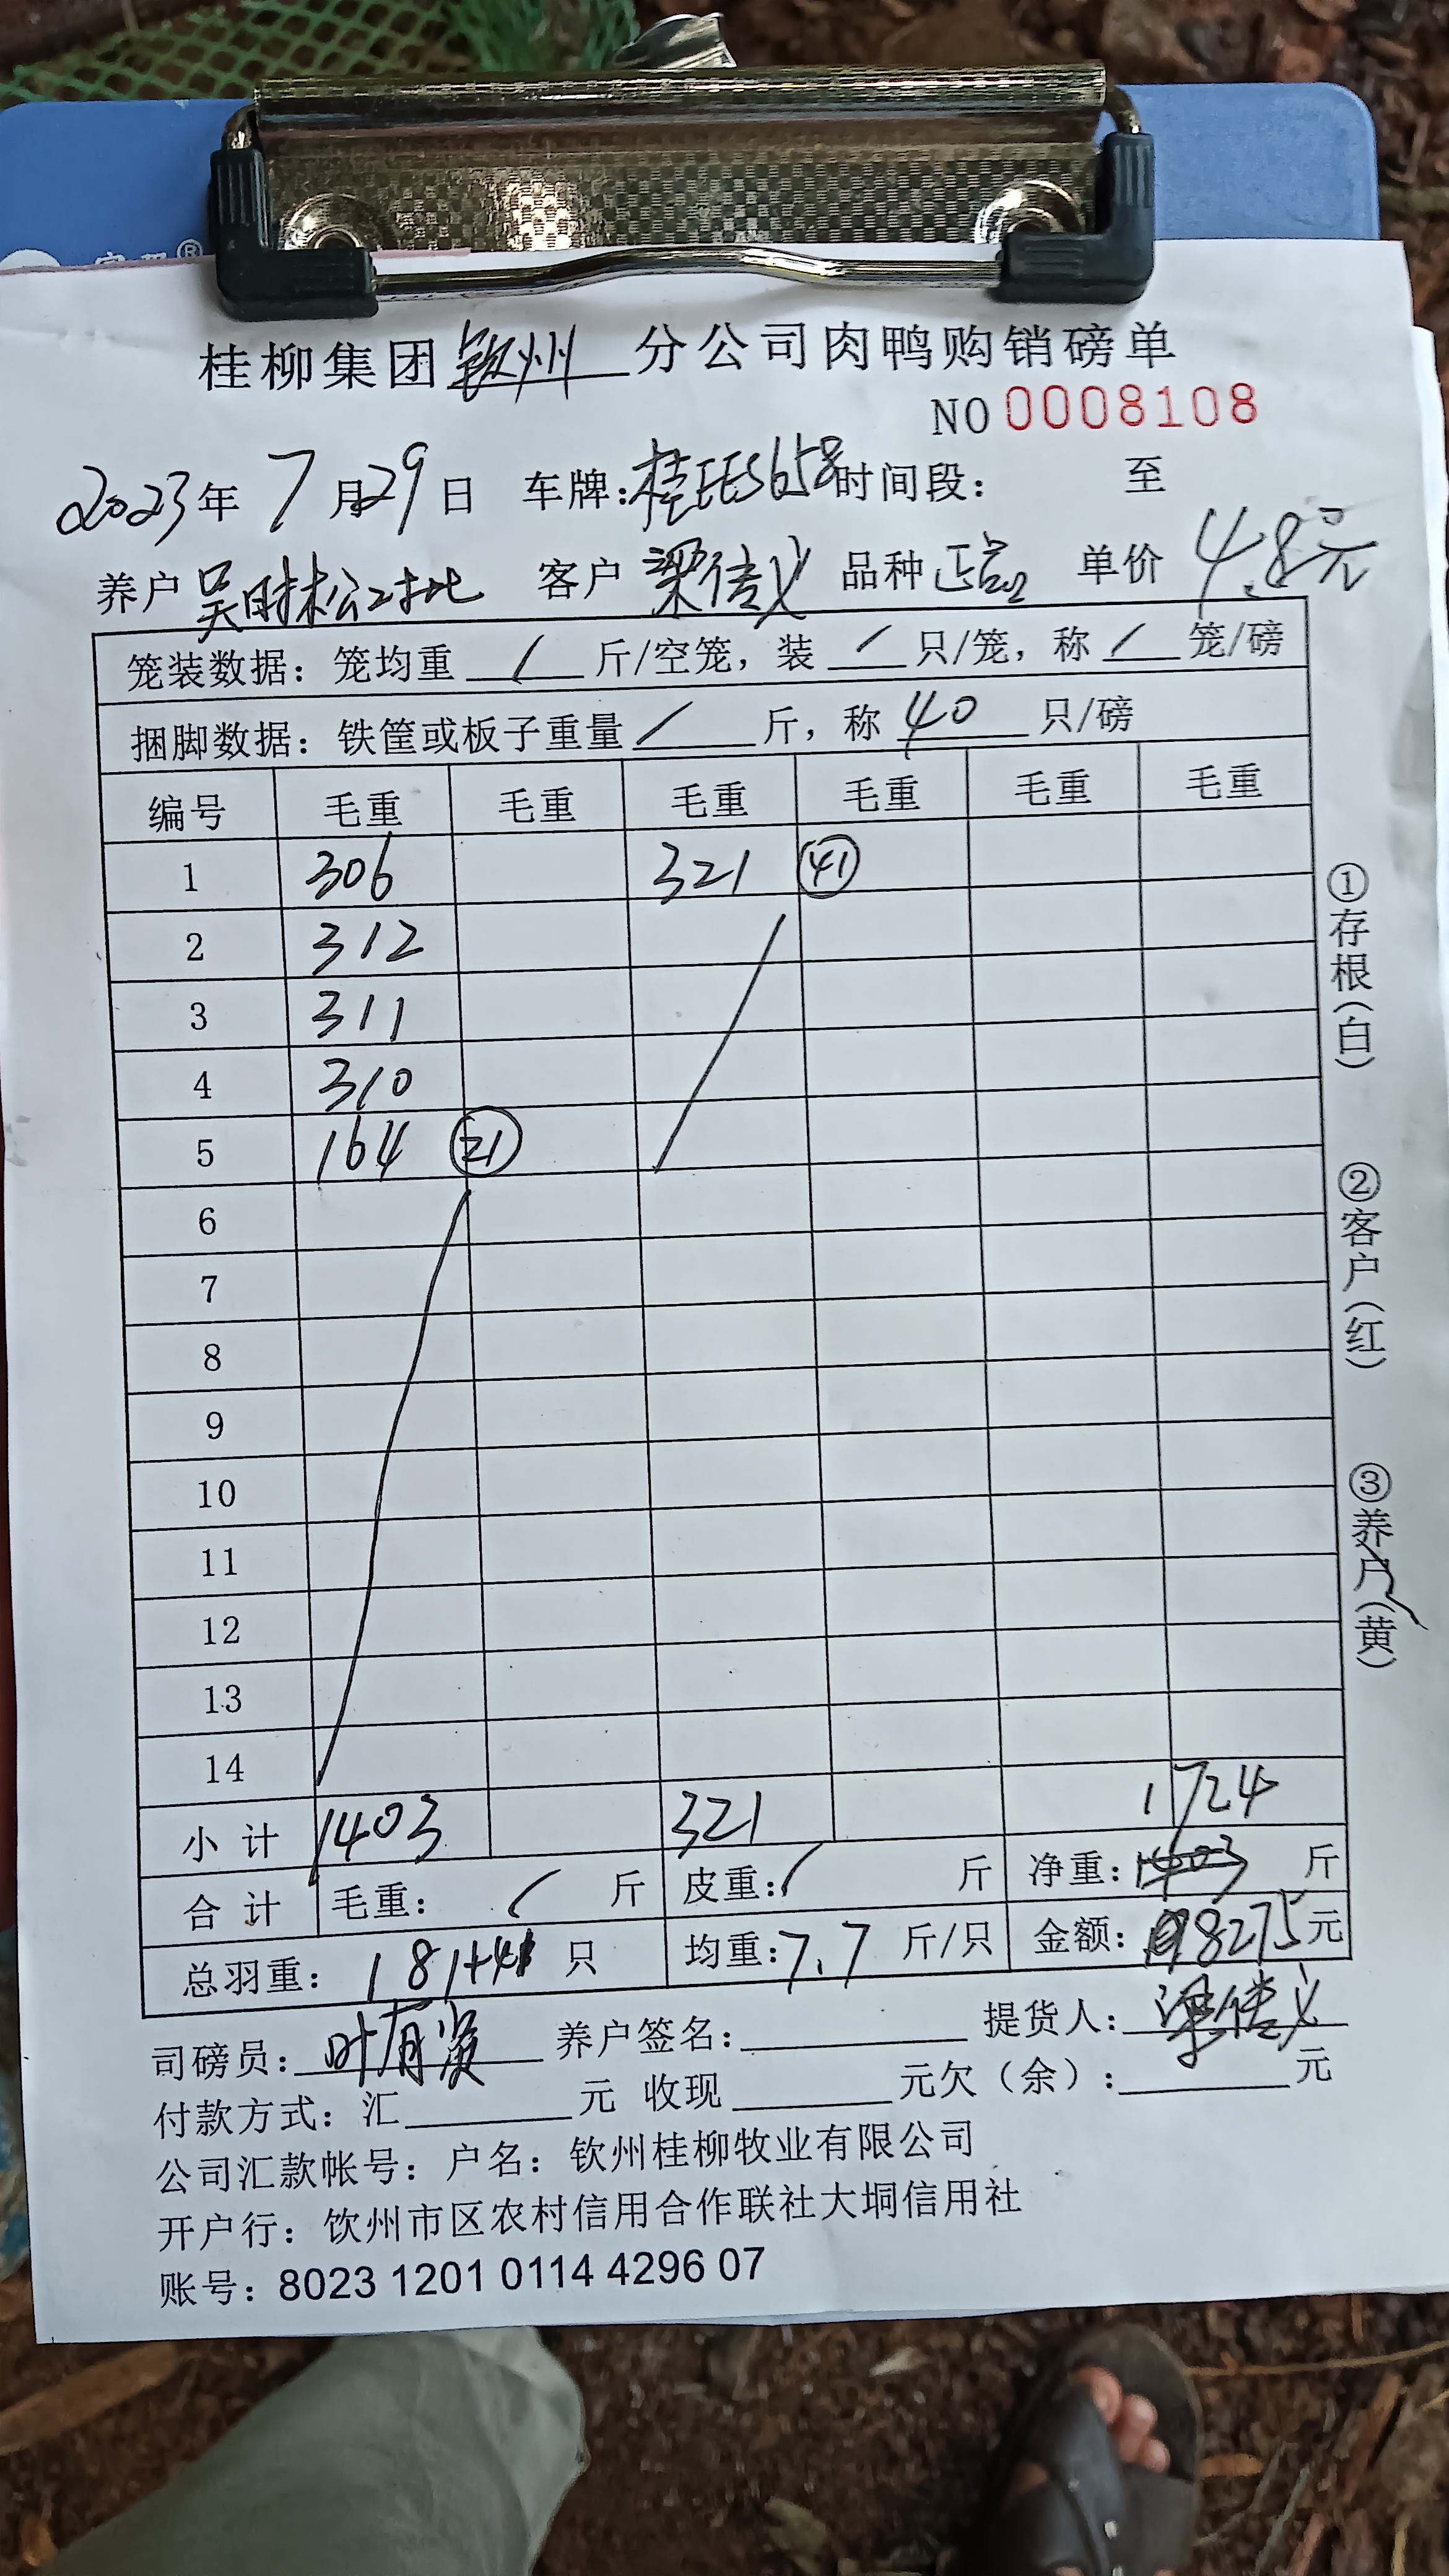 桂柳集团钦州分公司肉鸭购销磅单
NO 0008108
2023年7月29日 车牌:桂 时间段: 至
养户 吴 客户 梁信义 品种 正品 单价 4.8元
笼装数据: 笼均重 / 斤/空笼, 装 / 只/笼, 称 / 笼/磅
捆脚数据: 铁筐或板子重量 / 斤, 称 40 只/磅
编号 毛重 毛重 毛重 毛重 毛重 毛重
1 306 321 41
2 312
3 311
4 310
5 164 21
6
7
8
9
10
11
12
13
14
小计 1403 321 1724
合计 毛重: / 斤 皮重: / 斤 净重: 1403 斤
总羽重: 181+41 只 均重: 7.7 斤/只 金额: 8275元
司磅员: 叶 养户签名: 提货人: 梁信义
付款方式: 汇 元 收现 元欠(余): 元
公司汇款帐号: 户名: 钦州桂柳牧业有限公司
开户行: 钦州市区农村信用合作联社大垌信用社
账号: 8023 1201 0114 4296 07
①存根(白)
②客户(红)
③养户(黄)